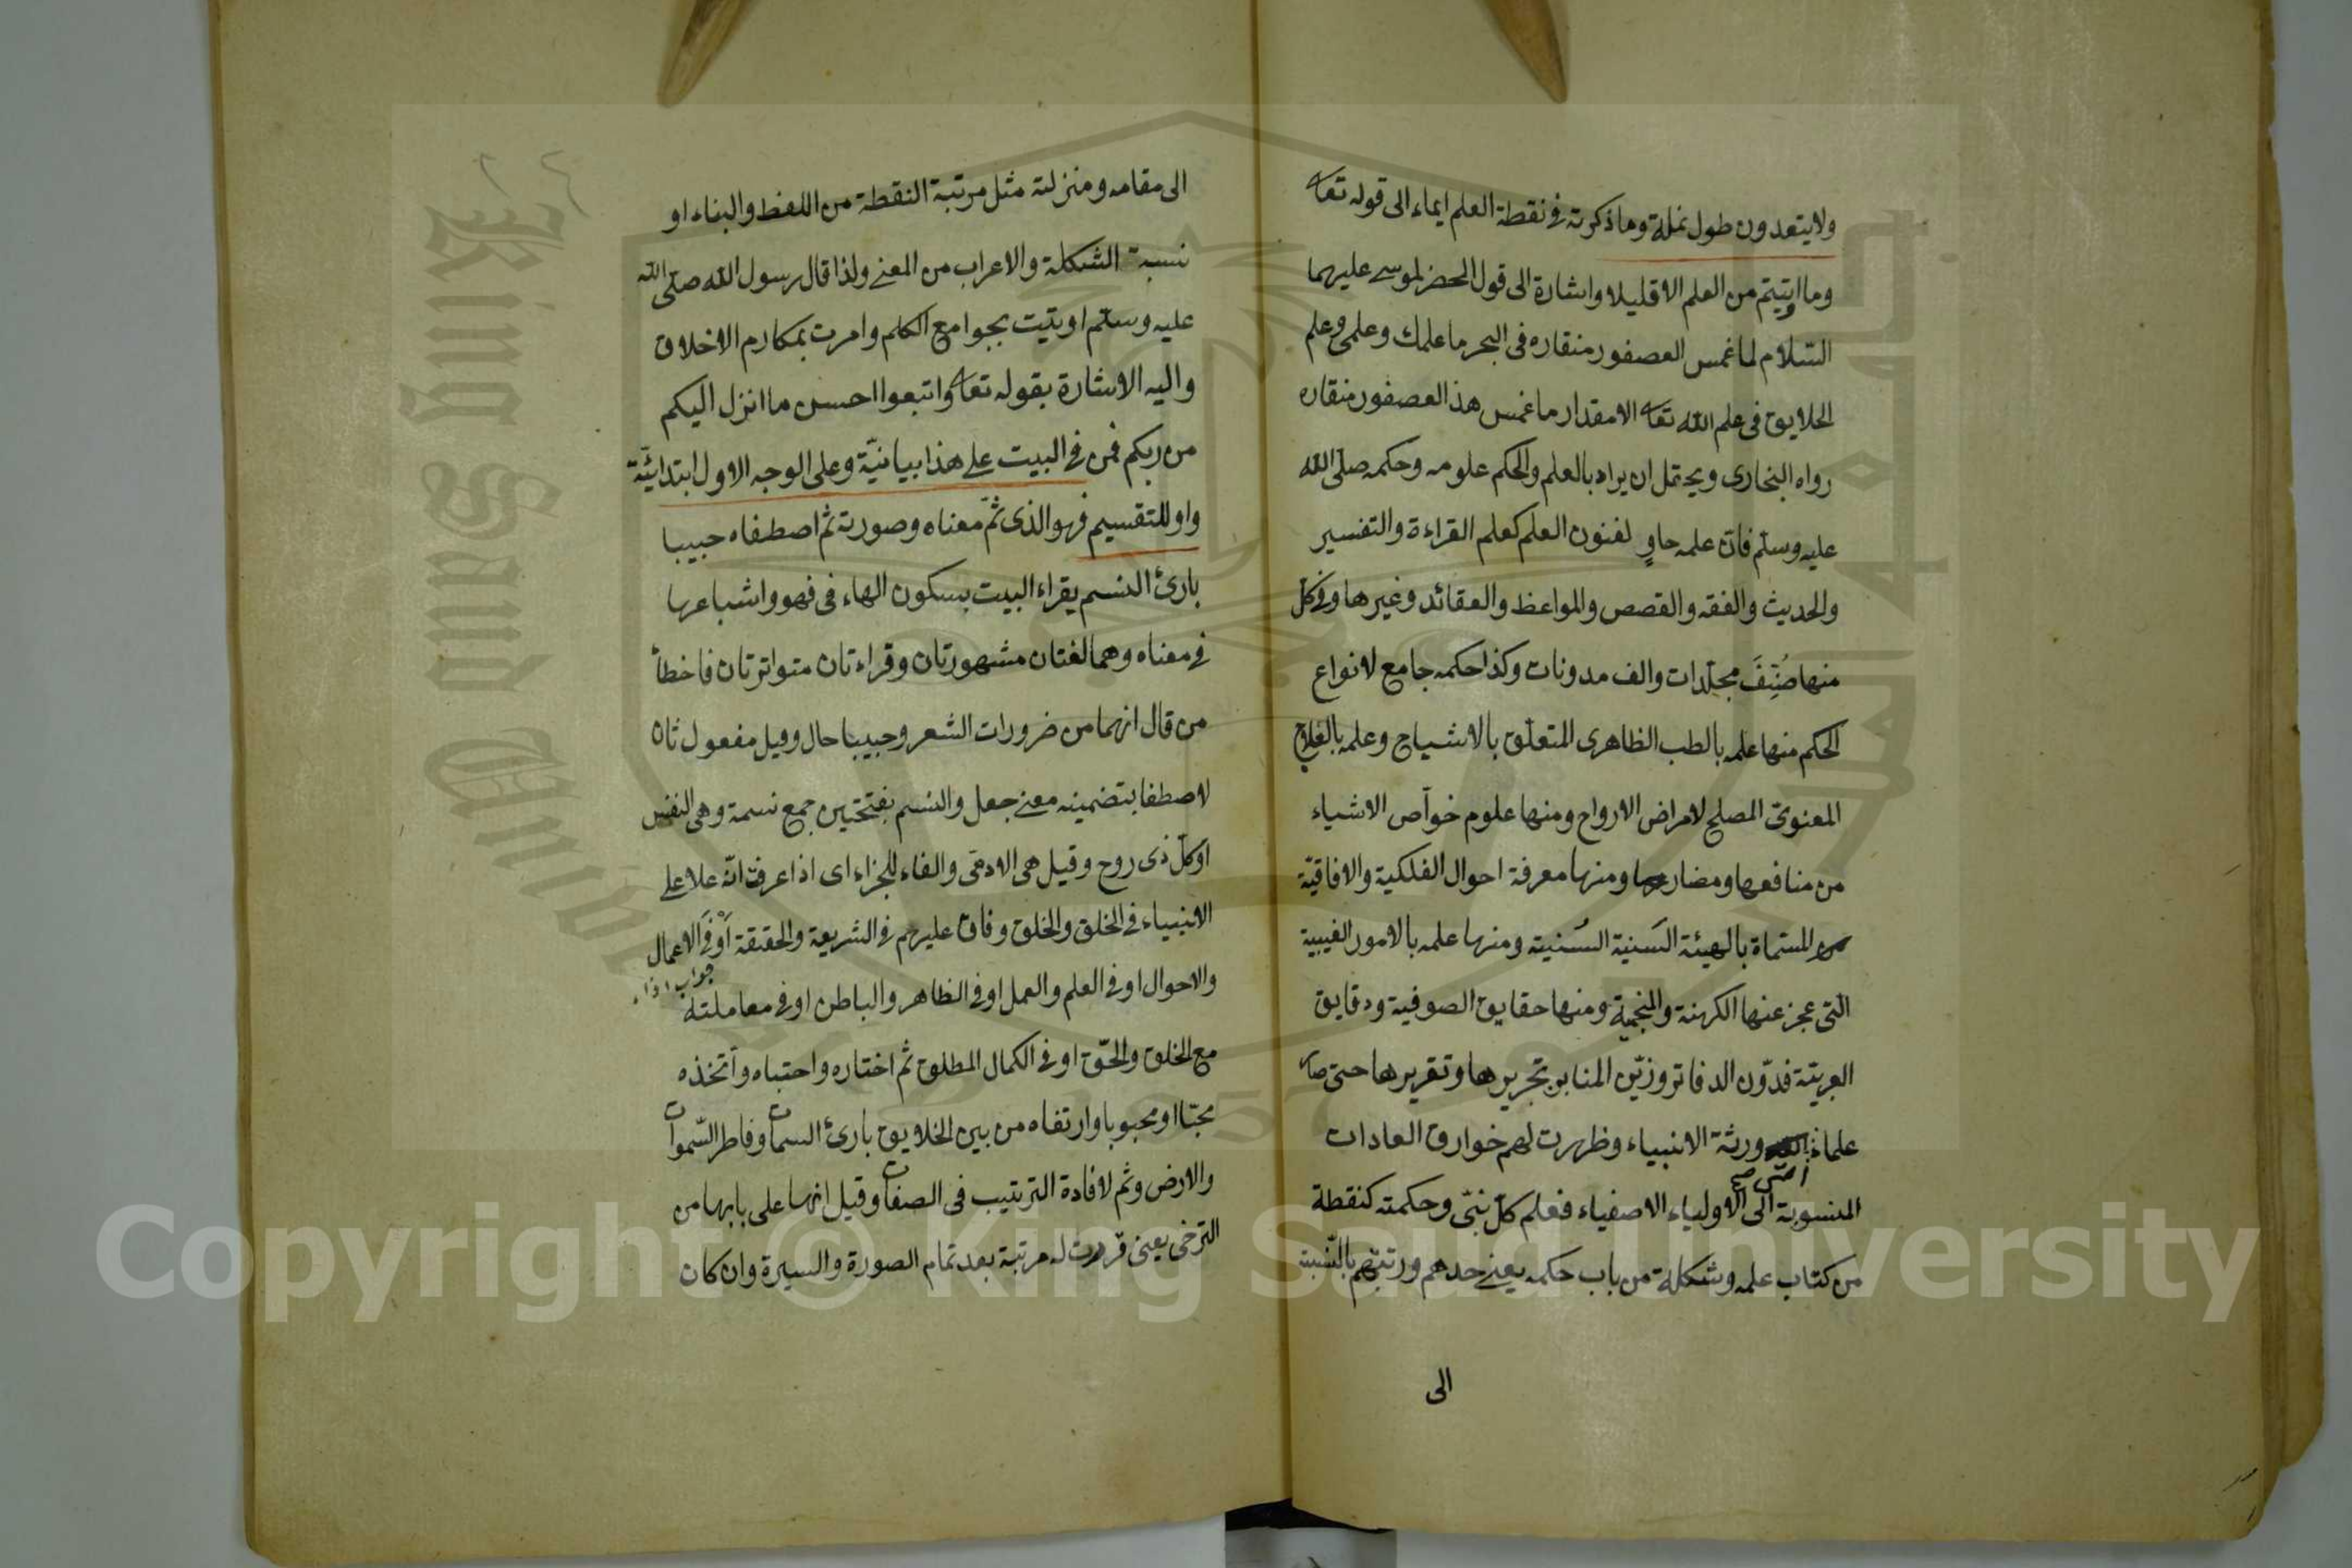 ولا يتعدون طول نملة وما ذكرته في نقطة العلم ايماء الى قوله تعا
وما اوتيتم من العلم الا قليلا واشارة الى قول الخضر لموسى عليهما
السلام لما غمس العصفور منقاره في البحر ما علمك وعلمي وعلم
الخلايق في علم الله تعا الا مقدار ما غمس هذا العصفور منقاره
رواه البخارى ويحتمل ان يراد بالعلم والحكم علومه وحكمه صلى الله
عليه وسلم فان علمه حاوٍ لفنون العلم كعلم القراءة والتفسير
والحديث والفقه والقصص والمواعظ والعقائد وغيرها وفي كل
منها صُنِّفَ مجلدات والف مدونات وكذا حكمه جامع لانواع
الحكم منها علمه بالطب الظاهرى المتعلق بالاشباح وعلمه بالعلاج
المعنوى المصلح لامراض الارواح ومنها علوم خواص الاشياء
من منافعها ومضارها ومنها معرفة احوال الفلكية والافاقية
المسماة بالهيئة السَنية السُنية ومنها علمه بالامور الغيبية
التى عجز عنها الكهنة والمنجمية ومنها حقايق الصوفية ودقايق
العربية فدوّن الدفاتر وزيّن المنابر بتحريرها وتقريرها حتى صا
علماء امته صح ورثة الانبياء وظهرت لهم خوارق العادات
المنسوبة الى الاولياء الاصفياء فعلم كل نبى وحكمته كنقطة
من كتاب علمه وشكلة من باب حكمه يعنى حدهم ورتبتهم بالنسبة
الى
الى مقامه ومنزلته مثل مرتبة النقطة من اللفظ والبناء او
نسبة الشكلة والاعراب من المعنى ولذا قال رسول الله صلى الله
عليه وسلم اوتيت بجوامع الكلم وامرت بمكارم الاخلاق
واليه الاشارة بقوله تعا واتبعوا احسن ما انزل اليكم
من ربكم فمن في البيت على هذا بيانيّة وعلى الوجه الاول ابتدائيّة
واو للتقسيم فهو الذى تمّ معناه وصورته ثم اصطفاه حبيبا
بارئ النسم يقراء البيت بسكون الهاء في فهو واشباعها
في معناه وهما لغتان مشهورتان وقراءتان متواترتان فاخطأ
من قال انهما من ضرورات الشعر وحبيبا حال وقيل مفعول ثان
لاصطفا بتضمينه معنى جعل والنسم بفتحتين جمع نسمة وهى النفس
او كل ذى روح وقيل هى الادمى والفاء للجزاء اى اذا عرفت انّه علا على
الانبياء في الخلق والخلق وفاق عليهم في الشريعة والحقيقة اَوْ في الاعمال
والاحوال او في العلم والعمل او في الظاهر والباطن او في معاملته جواب اذا
مع الخلق والحق او في الكمال المطلق ثم اختاره واجتباه واتخذه
محبّا او محبوبا وارتضاه من بين الخلايق بارئ السمات وفاطر السموات
والارض وثم لافادة الترتيب في الصفات وقيل انها على بابها من
التراخى يعنى قررت له مرتبة بعد تمام الصورة والسيرة وان كان
Copyright © King Saud University
King Saud University
1957